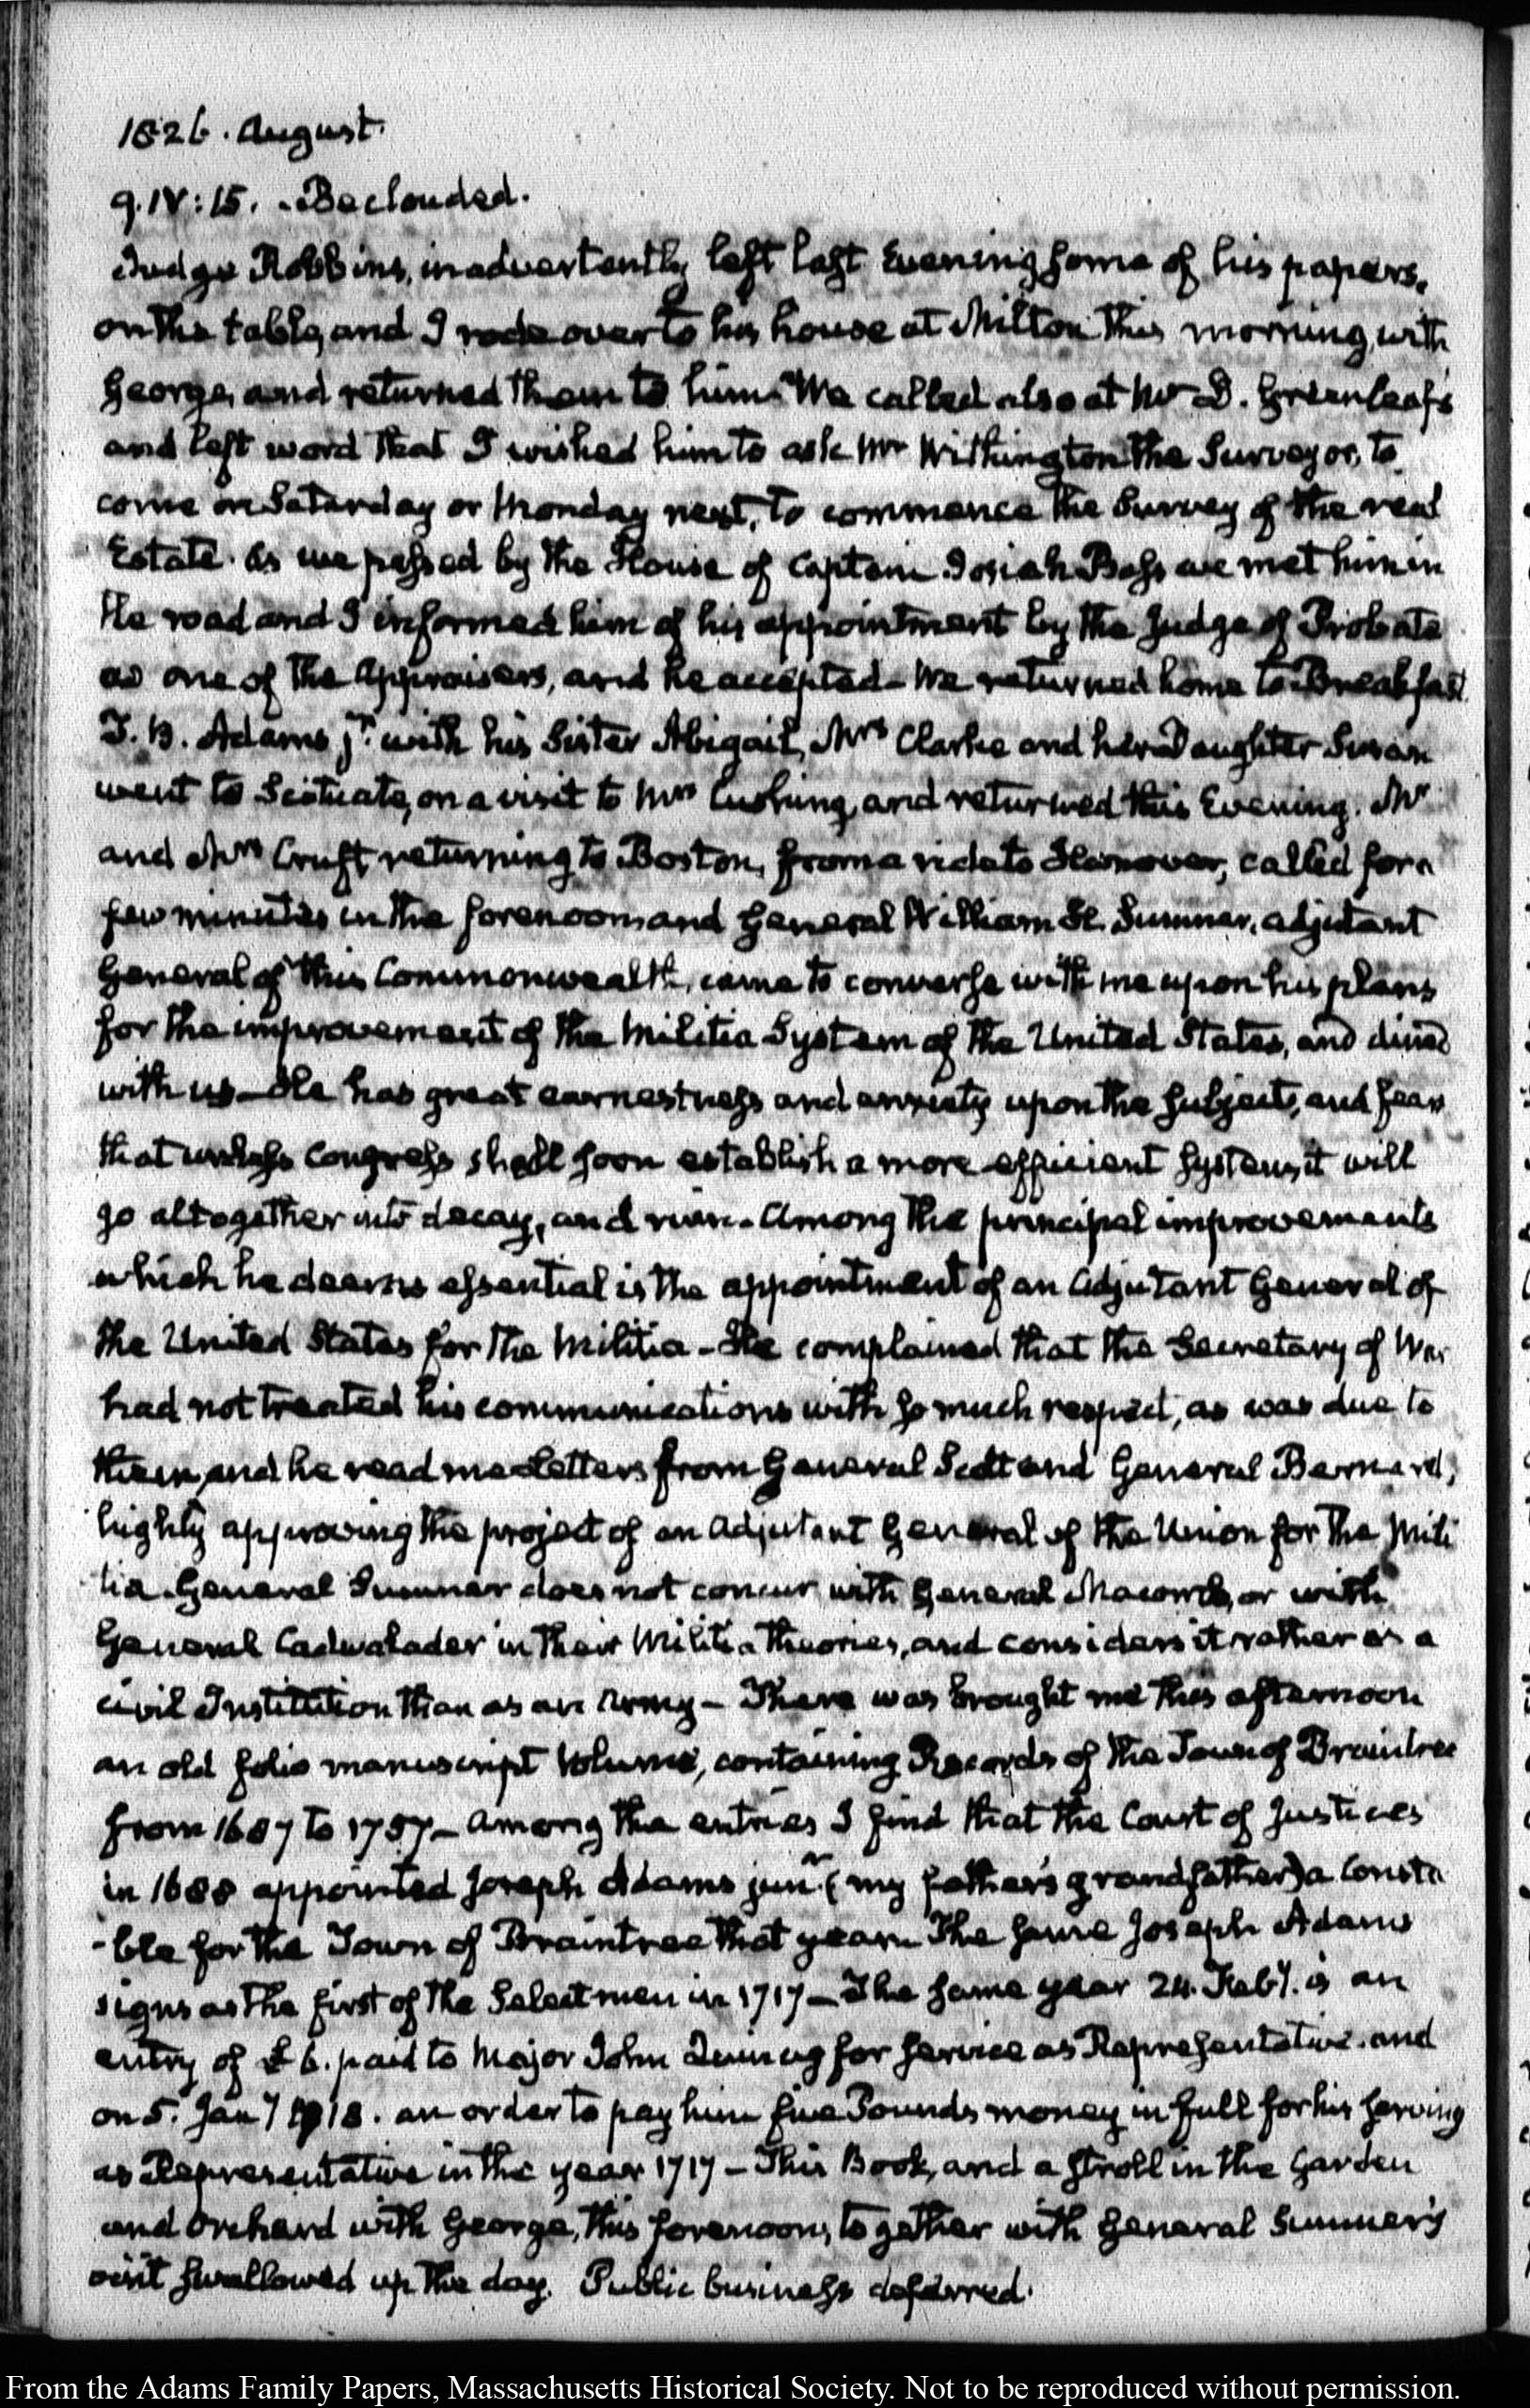 1826. August.
9. IV: 15. Beclouded.
Judge Robbins, inadvertently left last Evening some of his papers,
on the table, and I rode over to his house at Milton this morning, with
George, and returned them to him. We called also at Mr D. Greenleaf's
and left word that I wished him to ask Mr Withington the Surveyor, to
come on Saturday or Monday next, to commence the Survey of the real
Estate. As we passed by the House of Captain Josiah Bass we met him in
the road and I informed him of his appointment by the Judge of Probate
as one of the Appraisers, and he accepted. We returned home to Breakfast
T. B. Adams jr. with his Sister Abigail, Mrs Clarke and her Daughter Susan
went to Scituate, on a visit to Mrs Cushing, and returned this Evening. Mr
and Mrs Cruft, returning to Boston, from a ride to Hanover, called for a
few minutes in the forenoon, and General William H. Sumner, adjutant
General of this Commonwealth, came to converse with me upon his plans
for the improvement of the Militia System of the United States, and dined
with us—He has great earnestness and anxiety upon the subject, and fears
that unless Congress shall soon establish a more efficient system, it will
go altogether into decay, and ruin. Among the principal improvements
which he deems essential is the appointment of an Adjutant General of
the United States for the Militia—He complained that the Secretary of War
had not treated his communications with so much respect, as was due to
them, and he read me Letters from General Scott and General Bernard,
highly approving the project of an Adjutant General of the Union for the Mili
tia. General Sumner does not concur with General Macomb, or with
General Cadwalader in their Militia theories, and considers it rather as a
civil Institution than as an Army—There was brought me this afternoon
an old folio manuscript Volume, containing Records of the Town of Braintree
from 1687 to 1757—Among the entries I find that the Court of Justices
in 1688 appointed Joseph Adams junr. (my father's grandfather) a Consta
-ble for the Town of Braintree that year. The same Joseph Adams
signs as the first of the Selectmen in 1717—The same year 24. Feby. is an
entry of £6. paid to Major John Quincy for service as Representative. and
on 5. Jany 1718. an order to pay him five Pounds money in full for his serving
as Representative in the year 1717—This Book, and a stroll in the Garden
and Orchard with George, this forenoon, together with General Sumner's
visit swallowed up the day. Public business deferred.
From the Adams Family Papers, Massachusetts Historical Society. Not to be reproduced without permission.